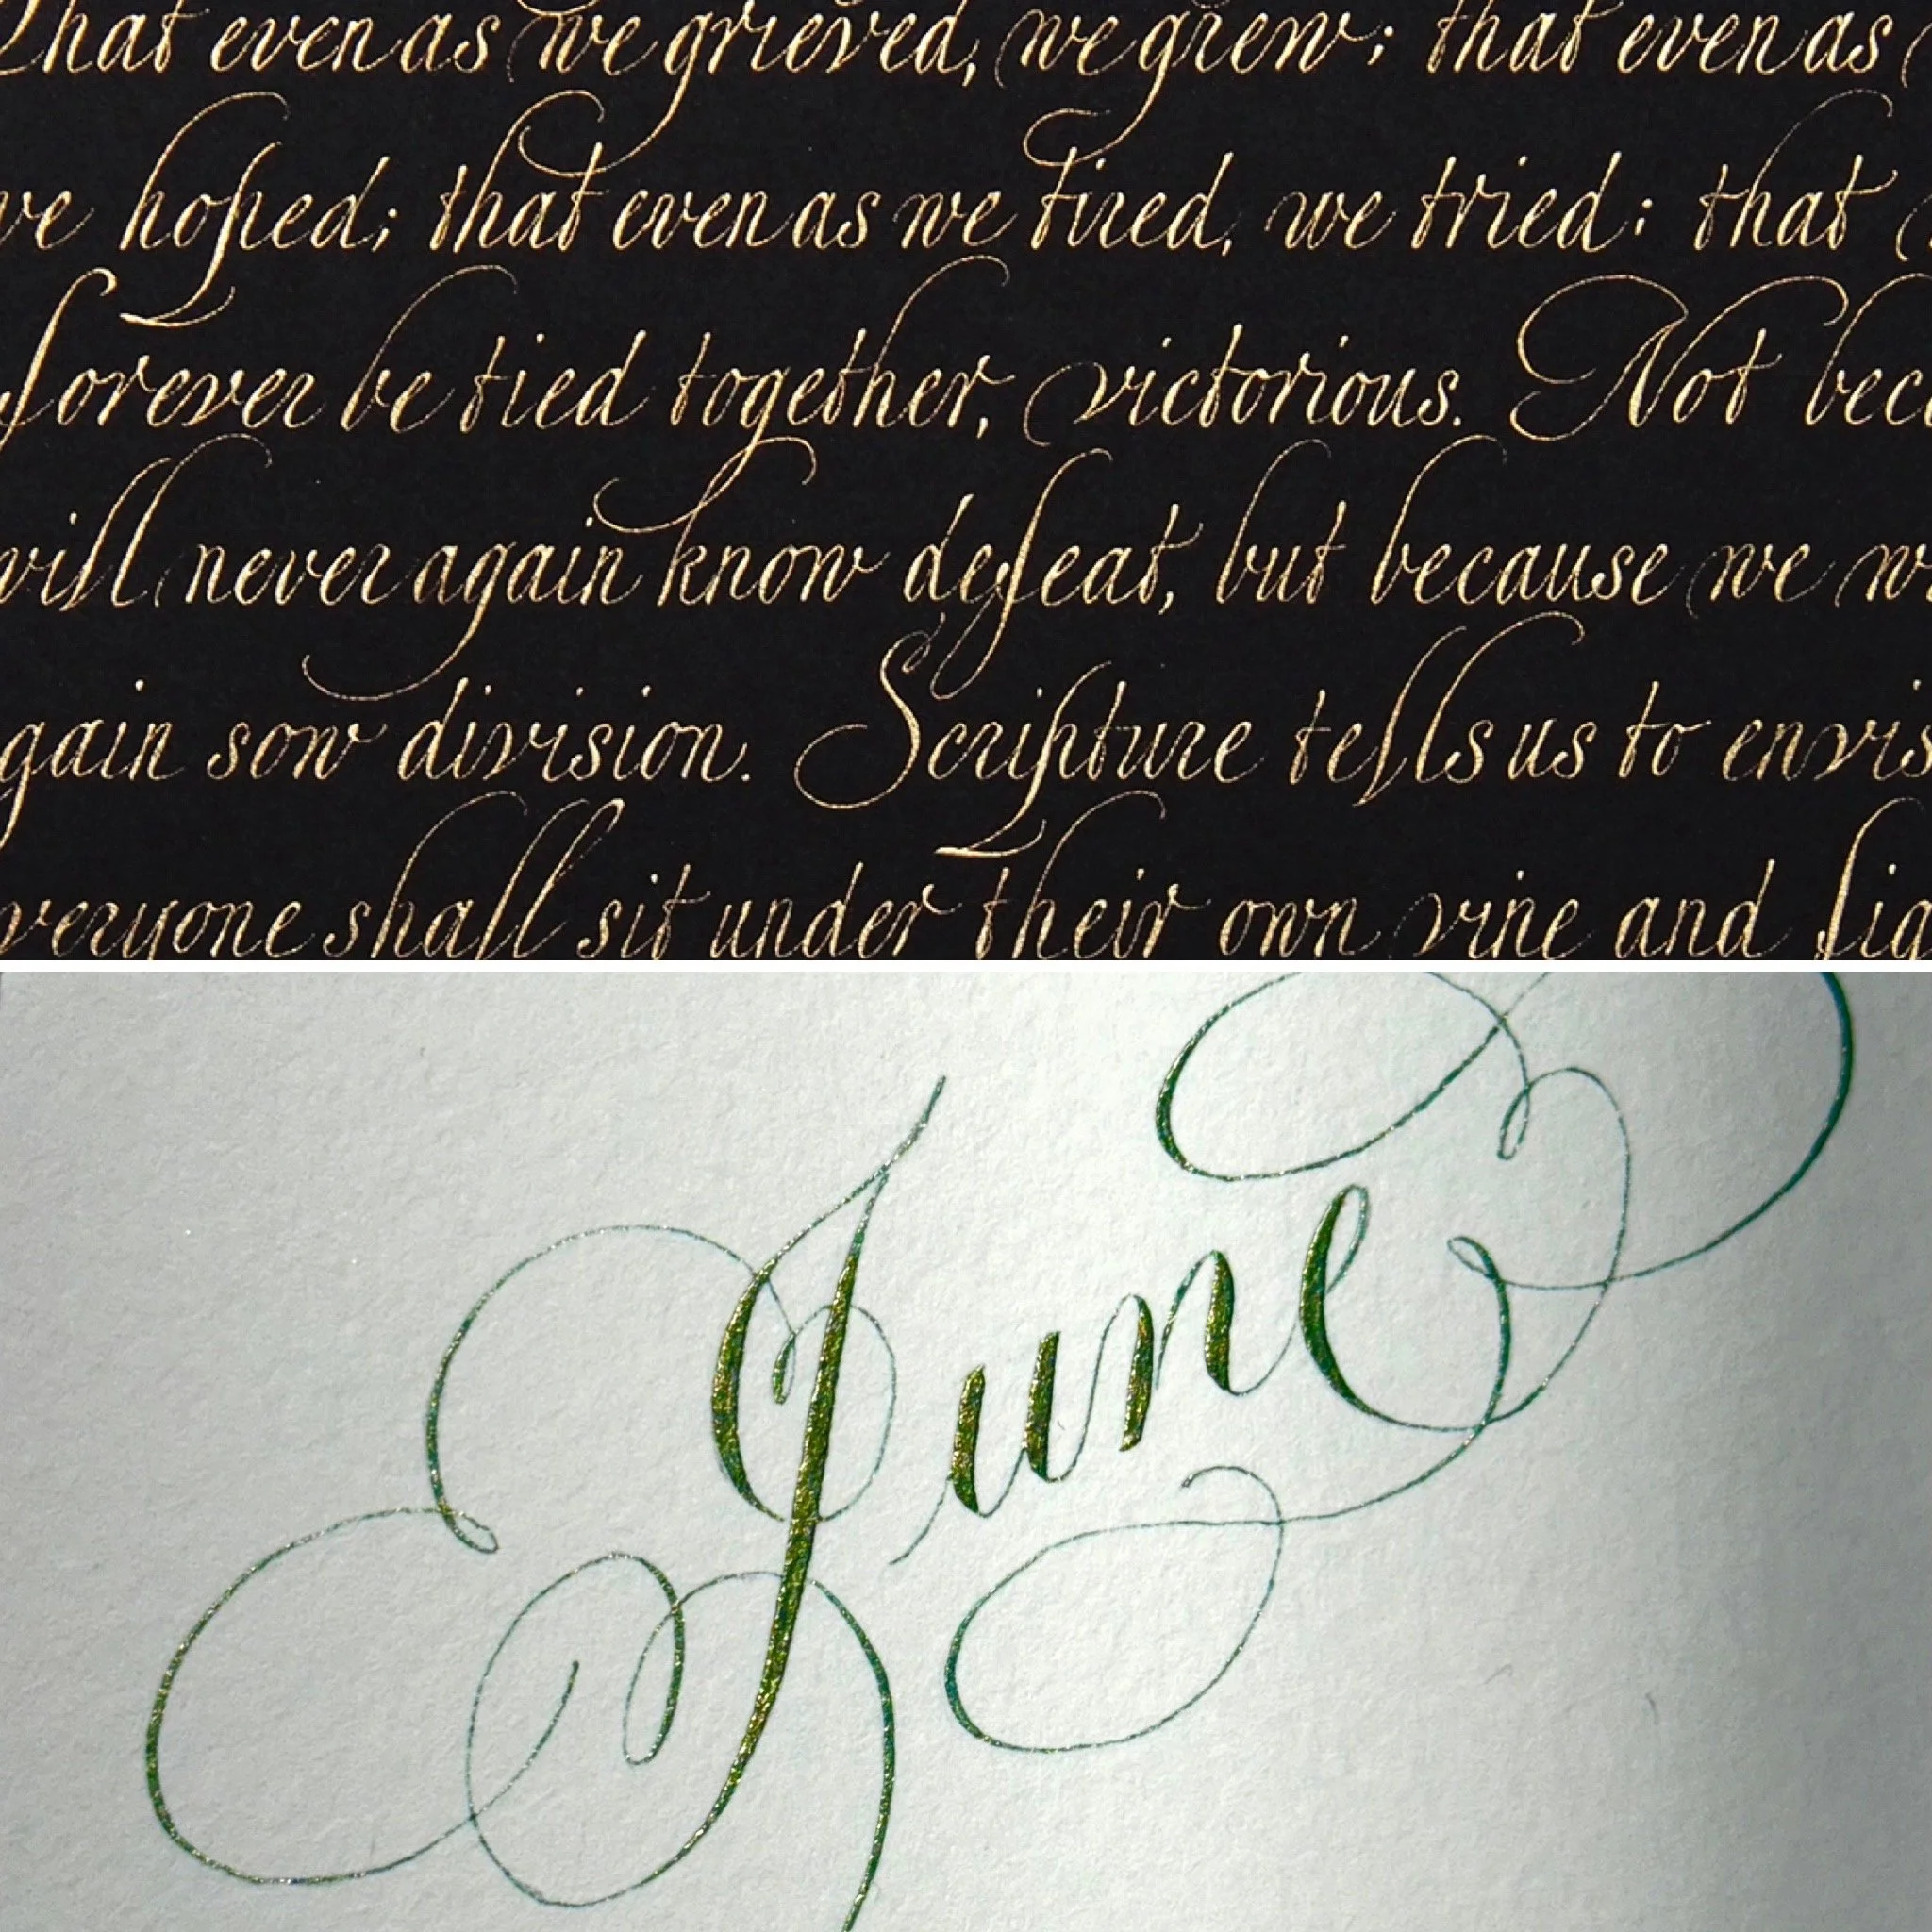 That even as we grieved, we grew; that even as
we hoped; that even as we tired, we tried: that
forever be tied together, victorious. Not
will never again know defeat, but because we
again sow division. Scripture tells us to
everyone shall sit under their own vine and
June